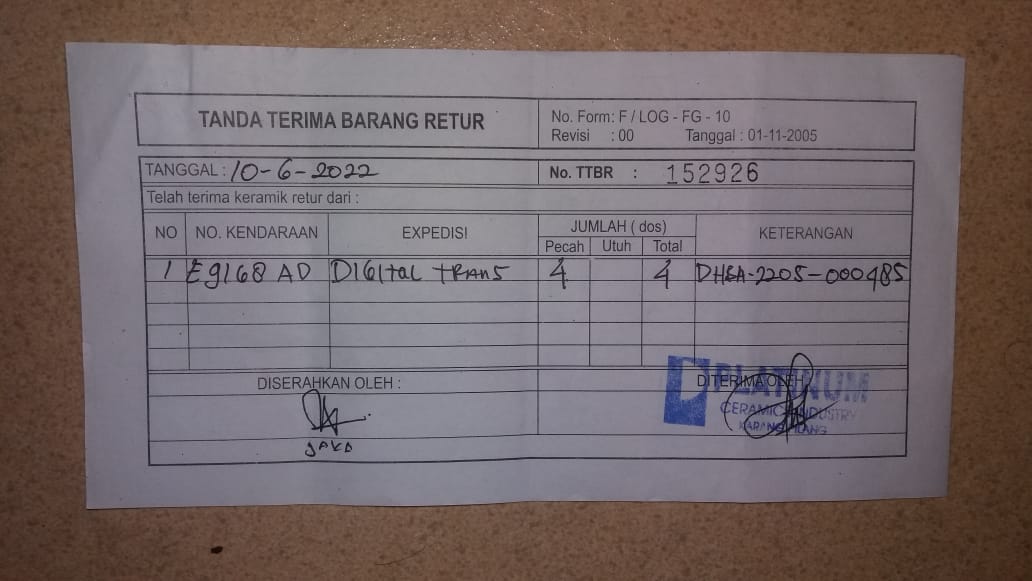 TANDA TERIMA BARANG RETUR
No. Form: F / LOG - FG - 10
Revisi : 00 Tanggal : 01-11-2005
TANGGAL : 10-6-2022 No. TTBR : 152926
Telah terima keramik retur dari :
NO NO. KENDARAAN EXPEDISI JUMLAH ( dos) KETERANGAN
Pecah Utuh Total
1 E9168 AD DIGITAL TRANS 4 4 DHSA-2205-000485
DISERAHKAN OLEH : DITERIMA OLEH
PLATINUM
CERAMIC INDUSTRY
KARANGPILANG
JAKA